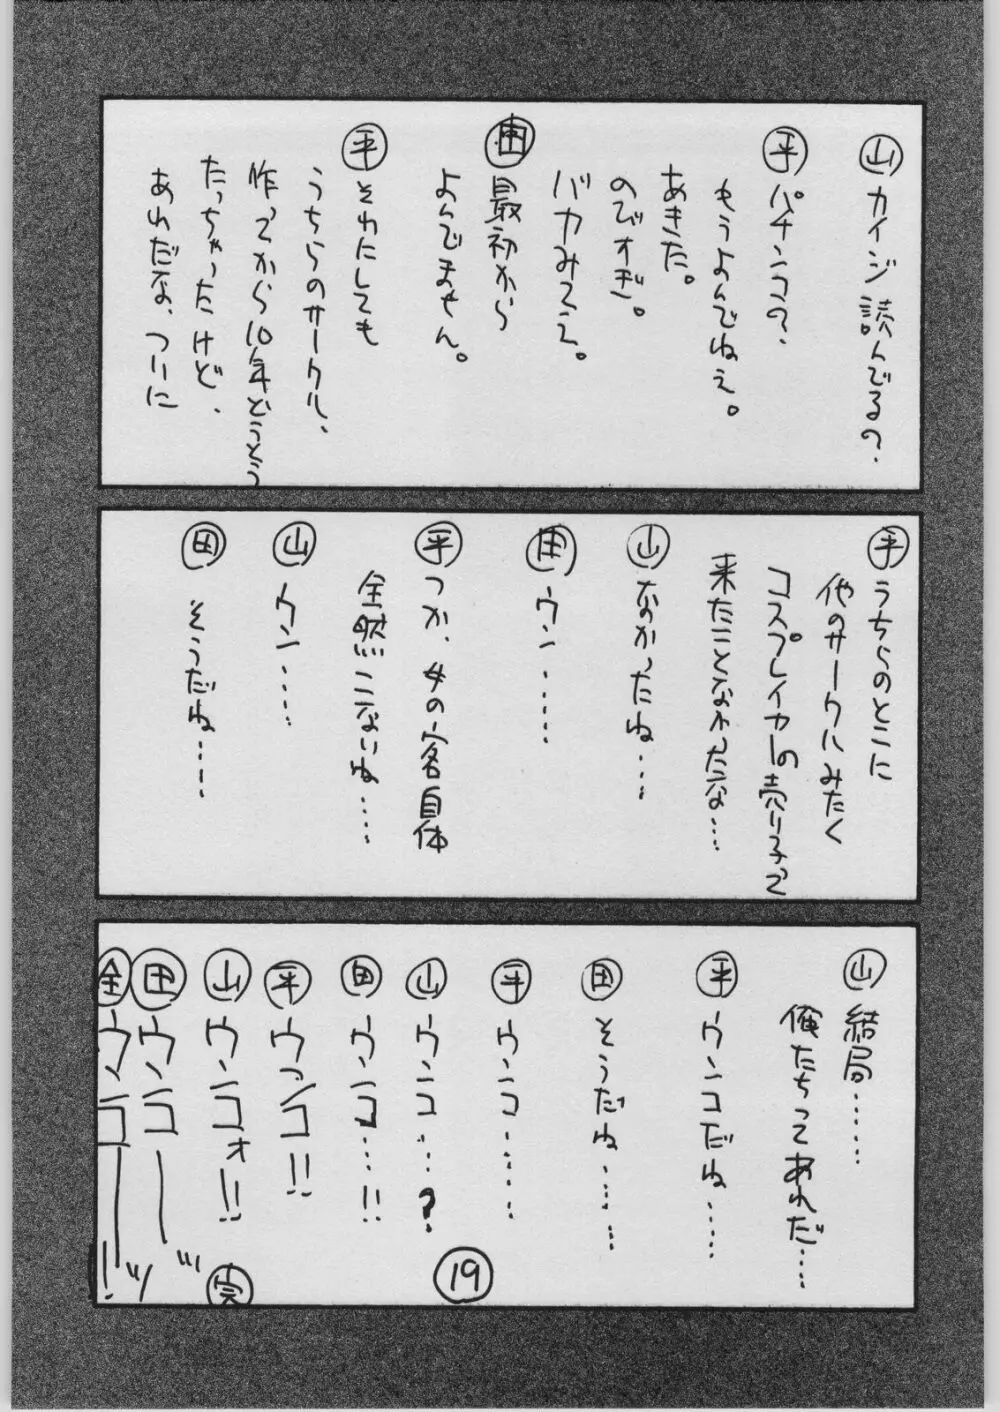 ㊤山 カイジ読んでるの？
平 パチンコの？
もうよんでねぇ。
あきた。
のびすぎ。
バカみてえ。
田 最初から
よんでません。
平 それにしても
うちらのサークル、
作ってから10年とうとう
たっちゃったけど、
あれだな、ついに
平 うちらのとこに
他のサークルみたく
コスプレイヤーの売り子って
来たことなかったな…
山 なかったね……
田 ウン……
平 つか、女の客自体
全然こないね……
山 ウン……
田 そうだね……
山 結局……
俺たちってあれだ……
平 ウンコだね……
田 そうだね……
平 ウンコ……
山 ウンコ…？
田 ウンコ…!!
平 ウンコ!!
山 ウンコォ!!
田 ウンコーッ
全 ウンコーッ!
完
19